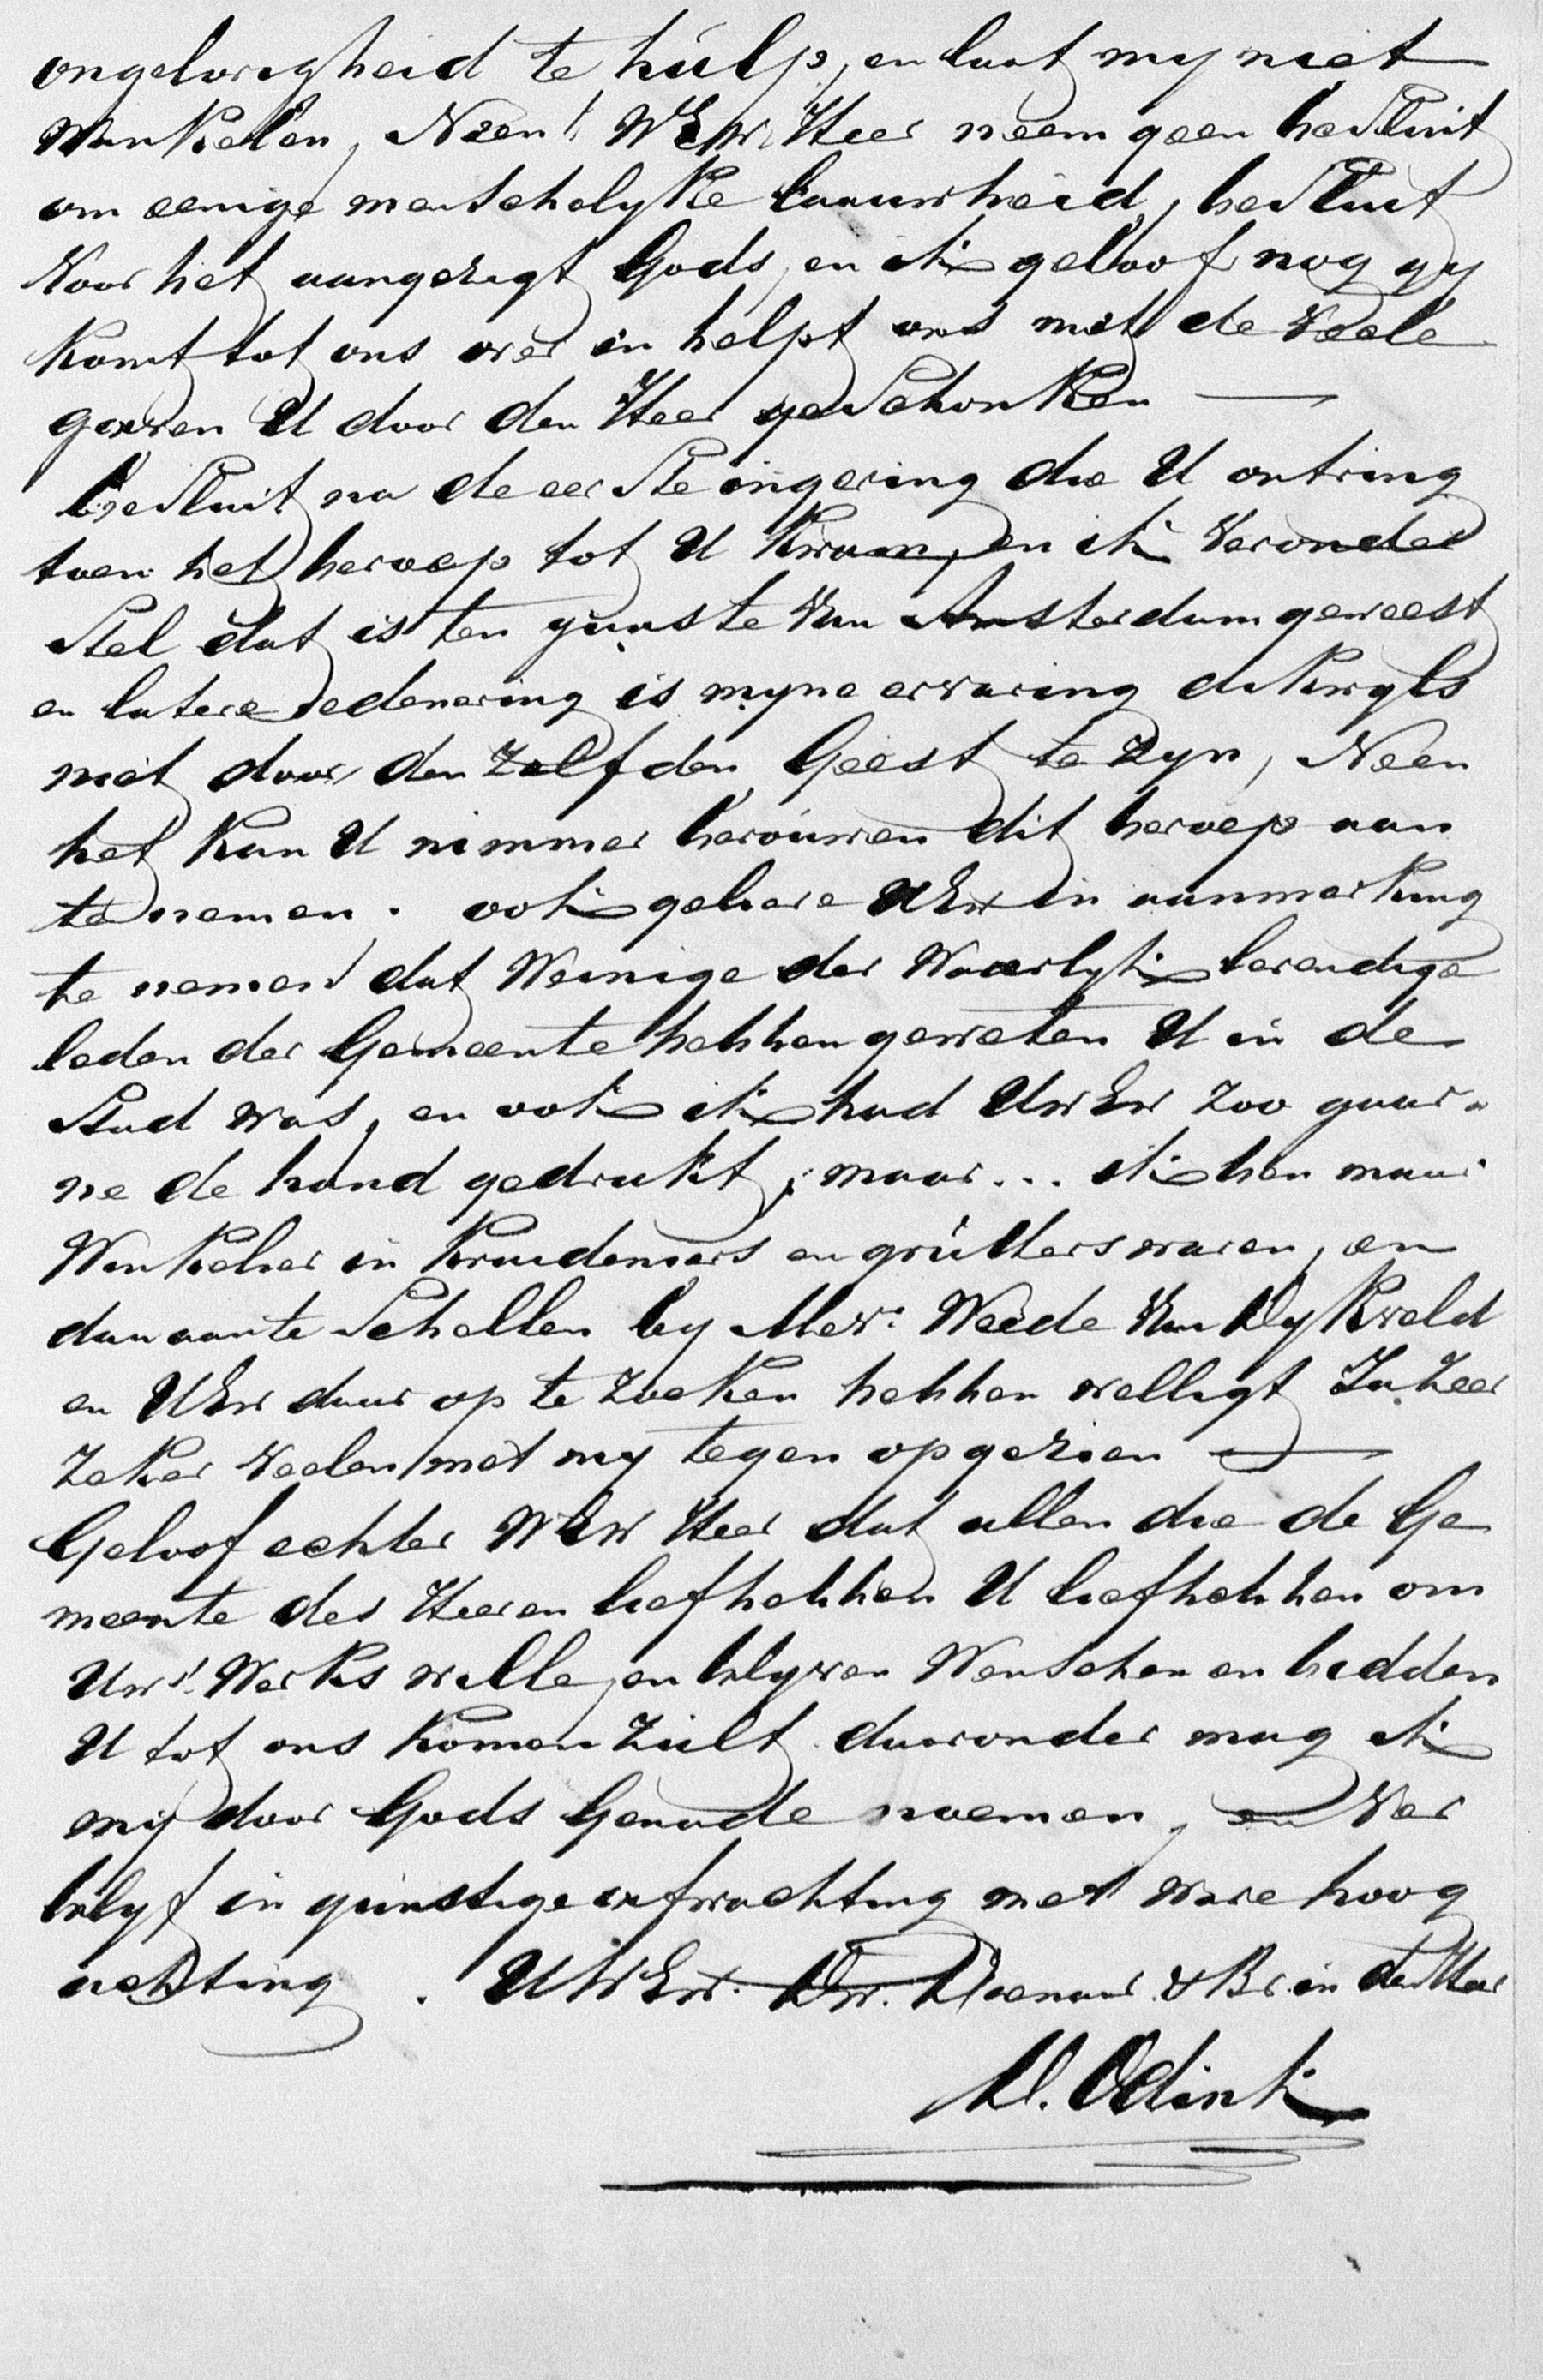 ongelovigheid te hulp, en laat my niet
wankelen, Neen! WEw Heer neem geen besluit
om eenige menschelyke lauwheid, besluit
voor het aangezigt Gods, en ik geloof nog gy
komt tot ons over en helpt ons met de veele
gaven U door den Heer geschonken —
besluit na de eerste ingeving die U ontving
toen het beroep tot U kwam, en ik veronder
stel dat is ten gunste van Amsterdam geweest
en latere redenering is myne ervaring dikwyls
niet door den zelfden Geest te zyn, Neen
het kan U nimmer berouwen dit beroep aan
te nemen. ook gelieve UEw in aanmerking
te nemen dat Weinige der Waarlyk levendige
leden der Gemeente hebben geweten U in de
Stad was, en ook ik had UwEw zoo gaar-
ne de hand gedrukt, maar... ik ben maar
Winkelier in Kruideniers en grutters waren, en
dan aan te Schellen by Mevr. Weede van Dykveld
en UEw daar op te zoeken hebben welligt Ja zeer
zeker veelen met my tegen opgezien —
Geloof echter WEw Heer dat allen die de Ge
meente des Heeren liefhebben U liefhebben om
Uws Werks wille, en blyven Wenschen en bidden
U tot ons komen zult daaronder mag ik
my door Gods Genade noemen, en Ver
blyf in gunstige afwachting met ware hoog
achting. UWEw. Dw. Dienaar & Br. in den Heer
D. Odink